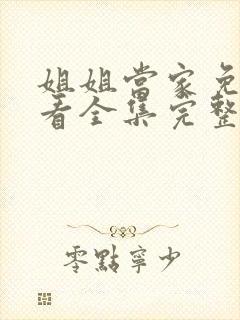 姐姐當家免
看全集完整
零點寧少